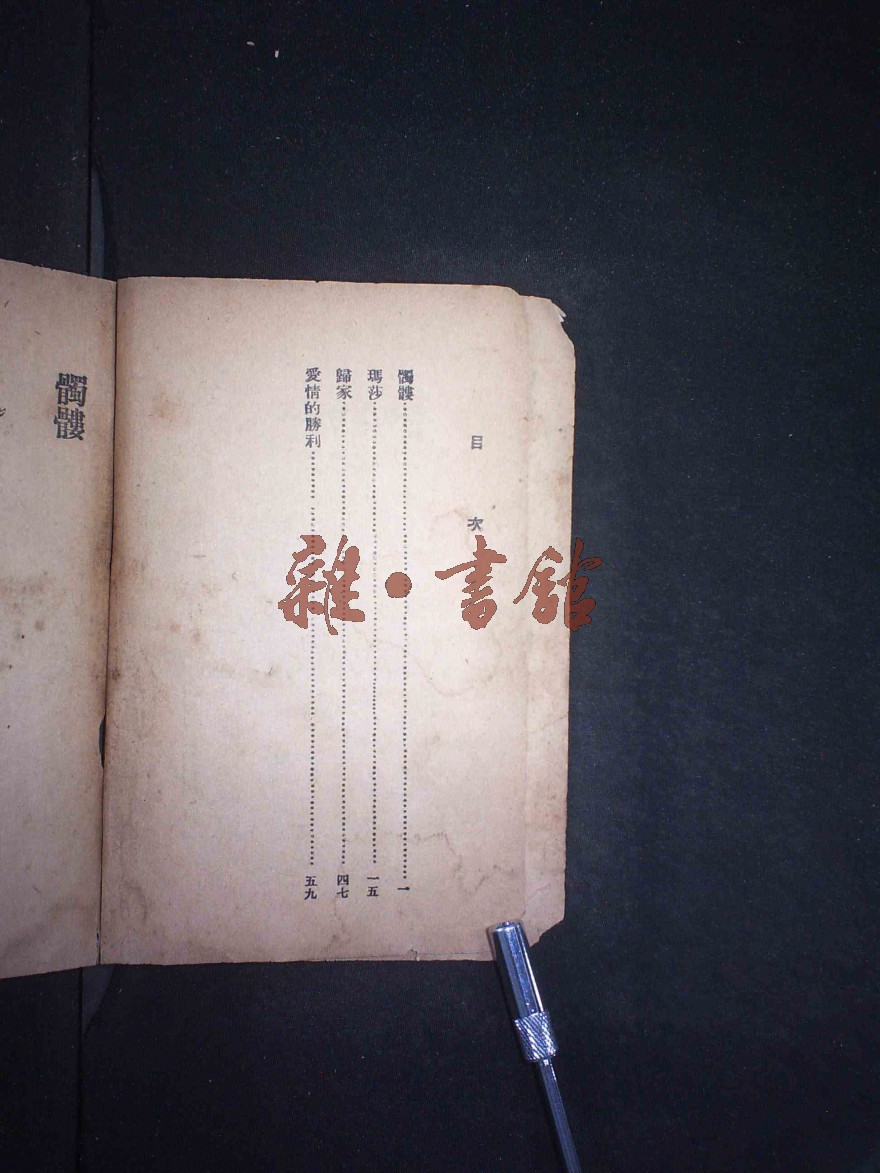 目次
髑髏⋯⋯⋯⋯⋯⋯⋯⋯一
瑪莎⋯⋯⋯⋯⋯⋯⋯⋯一五
歸家⋯⋯⋯⋯⋯⋯⋯⋯四七
愛情的勝利⋯⋯⋯⋯⋯⋯⋯⋯五九
髑髏
雜·書館